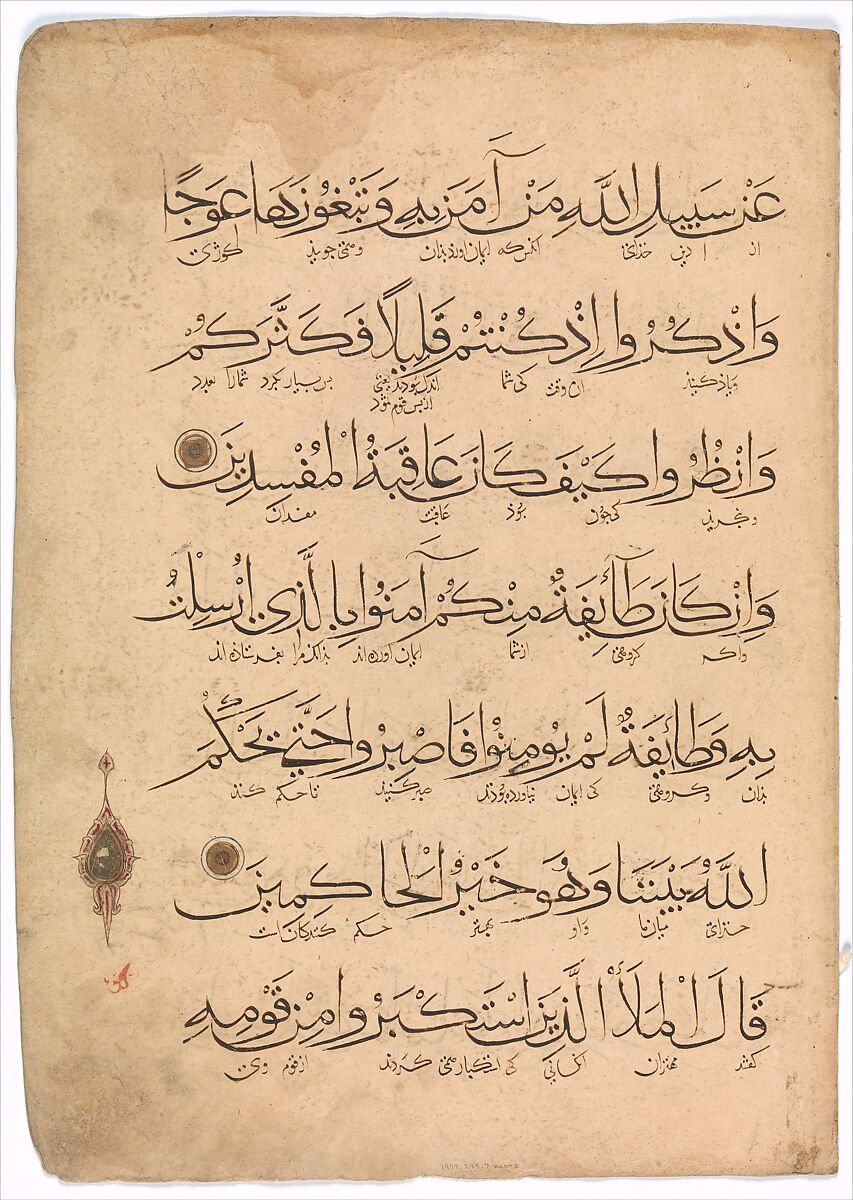 عَنْ سَبِيلِ اللَّهِ مَنْ آمَنَ بِهِ وَتَبْغُونَهَا عِوَجًا
از دین خذای انکس که ایمان اورد بذان ومی جویید کوژی
وَاذْكُرُوا إِذْ كُنْتُمْ قَلِيلًا فَكَثَّرَكُمْ
ویاذ کنید ان وقت کی شما اندک بودید یعنی بس بسیار کرد شمارا بعدد
از بس قوم نود
وَانْظُرُوا كَيْفَ كَانَ عَاقِبَةُ الْمُفْسِدِينَ
وبنکرید کی جون بوذ عاقبت مفسدان
وَإِنْ كَانَ طَآئِفَةٌ مِنْكُمْ آمَنُوا بِالَّذِي أُرْسِلْتُ
واکر کروهی ازشما ایمان اورده اند بذانک مرا بفرستاذه اند
بِهِ وَطَآئِفَةٌ لَمْ يُومِنُوا فَاصْبِرُوا حَتَّى يَحْكُمَ
بذان وکروهی کی ایمان نیاورده بوذند صبر کنید تا حکم کند
اللَّهُ بَيْنَنَا وَهُوَ خَيْرُ الْحَاكِمِينَ
خذای میان ما واو بهتر حکم کنندکان است
قَالَ الْمَلَأُ الَّذِينَ اسْتَكْبَرُوا مِنْ قَوْمِهِ
کفتند مهتران انکسانی کی استکبار می کردند ازقوم وی
1979.295.7 Recto